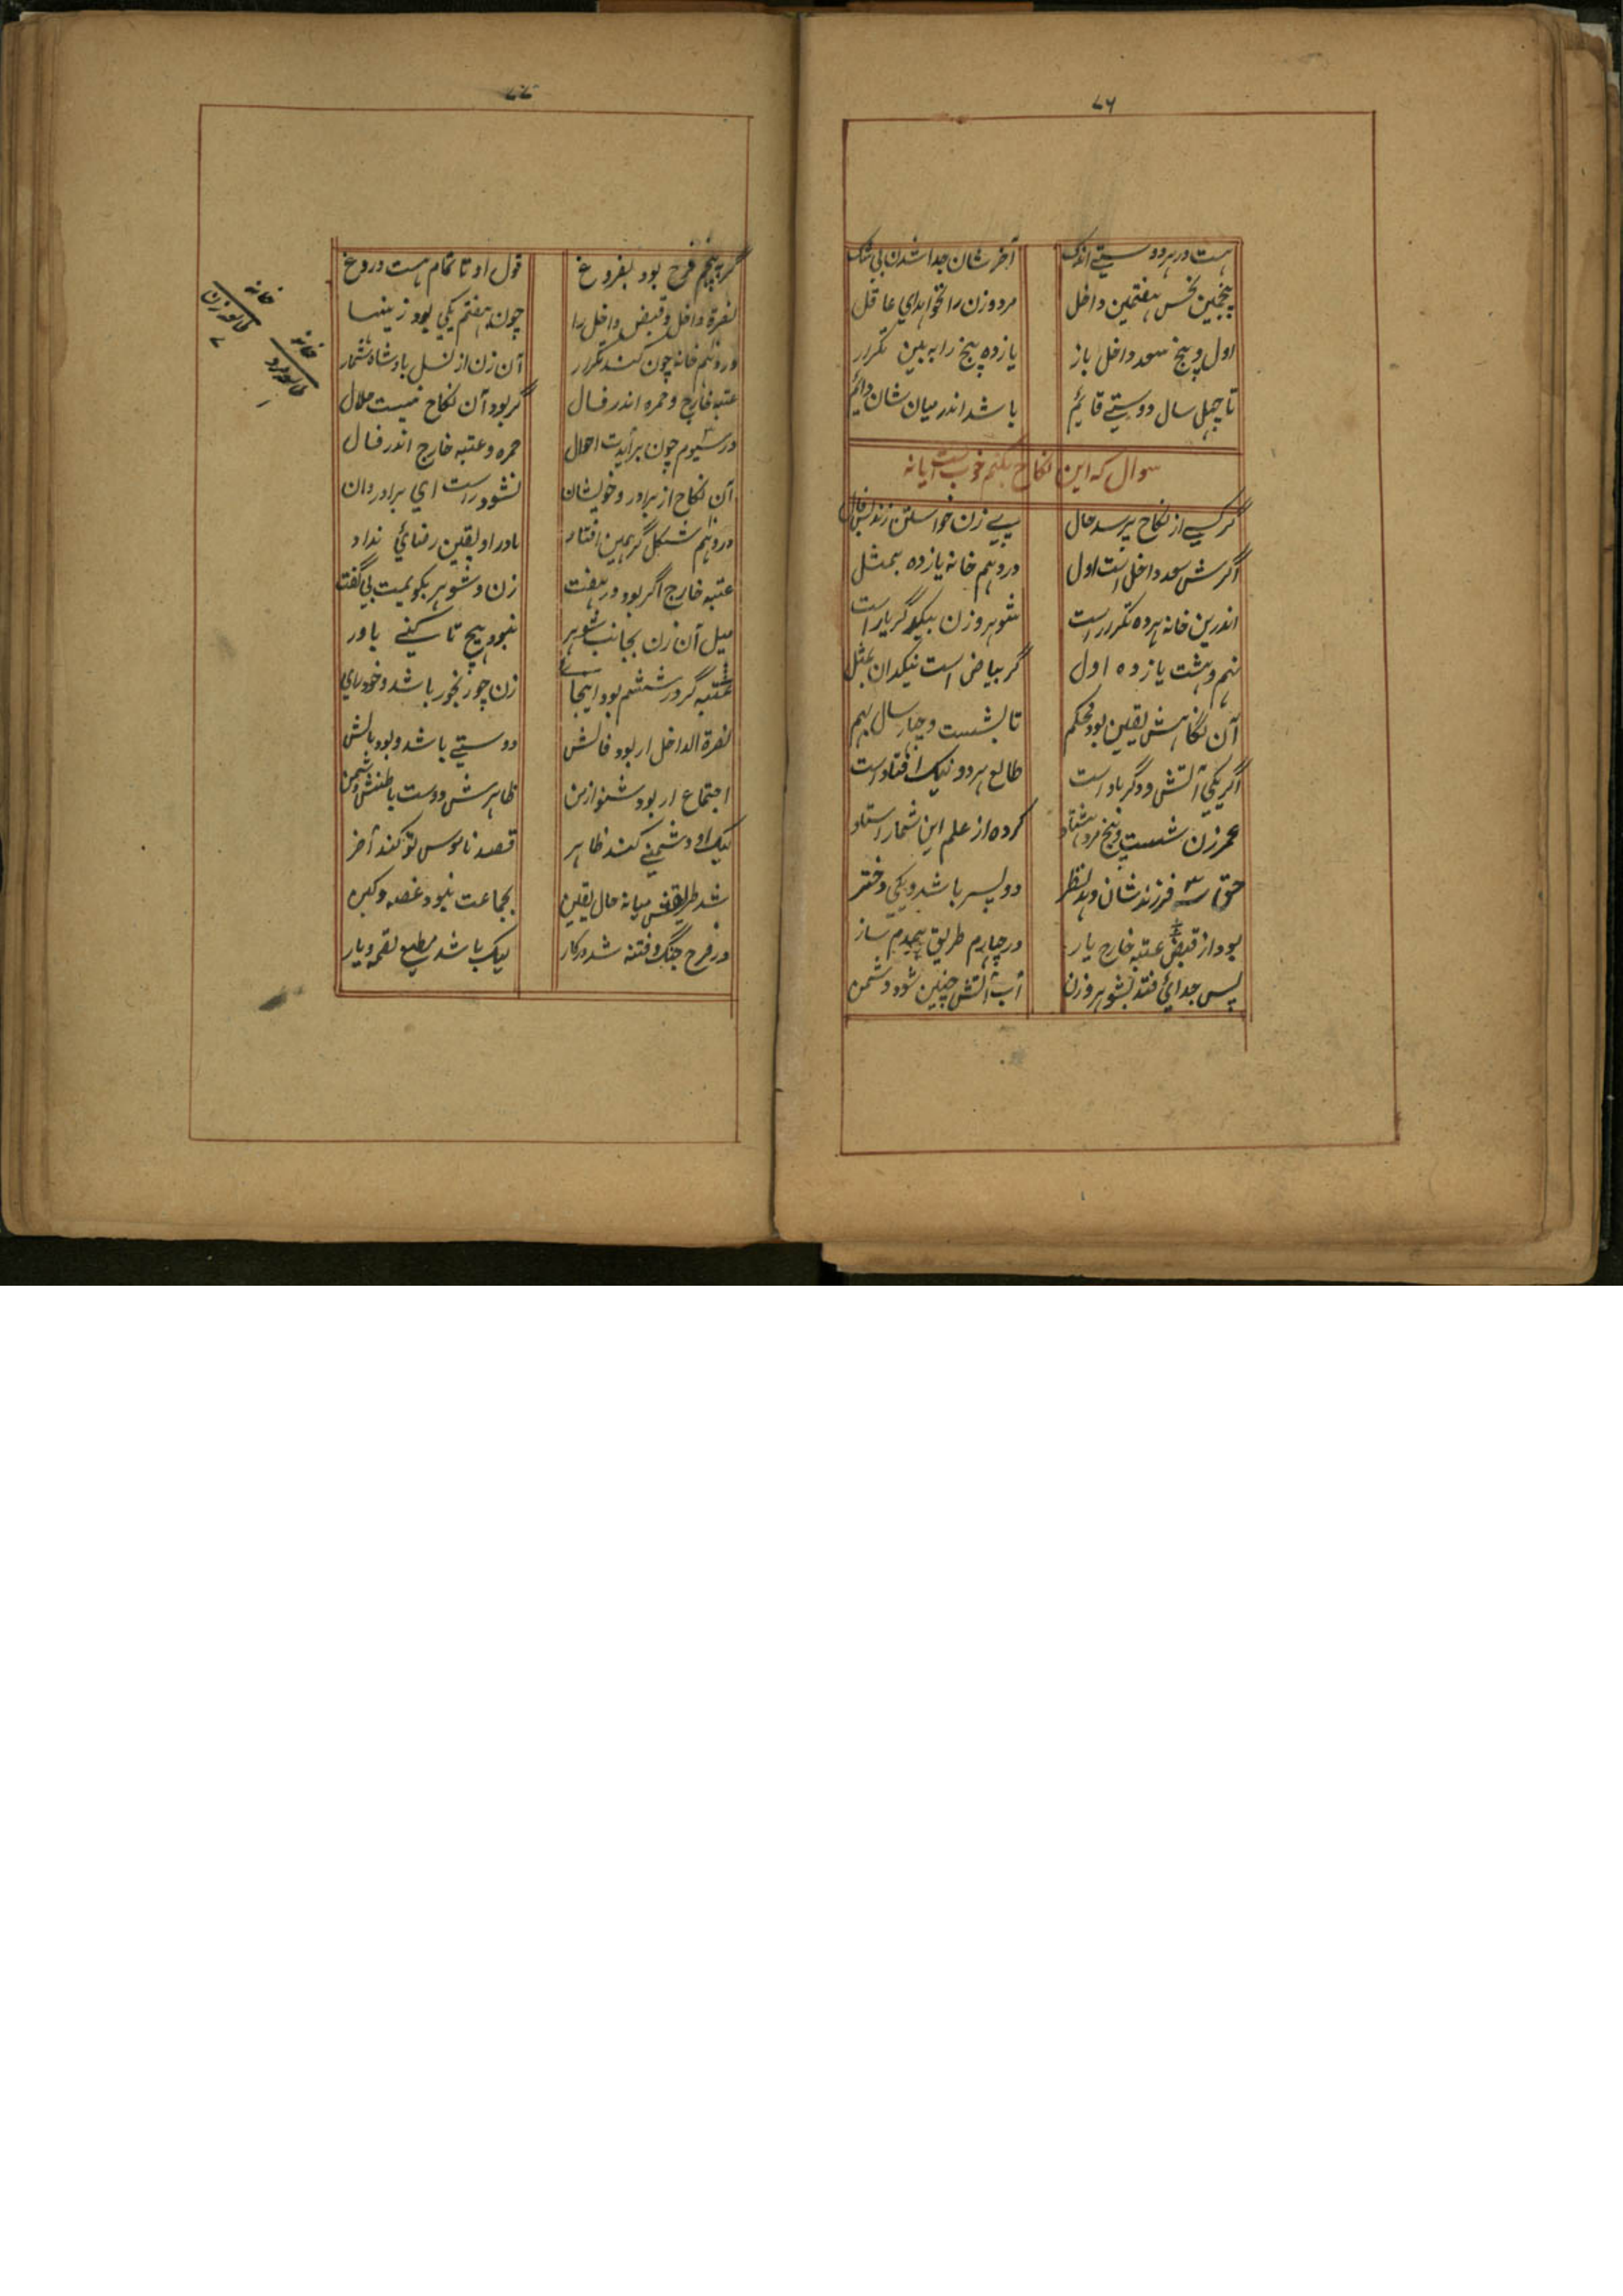 ۷۶
هست در هر دو دوستی اندک آخر شان جدا شدن بی شک
پنجمین نحس هفتمین داخل مرد و زن را نخواهد ای عاقل
اول و پنج سعد داخل باز یازده پنج را ببین تکرار
تا چهل سال دوستی قایم باشد اندر میان شان دائم
سوال که این نکاح بکنم خوب است یا نه
گر کسی از نکاح پرسد حال پی زن خواستن زند فال
اگرش سعد داخل است اول در دهم خانه یازده بمثل
اندرین خانه هر ده تکرار است شوهر و زن بیکدگر یار است
نهم و هشت یازده اول گر بیاض است نیک دان بمثل
آن نکاحش یقین بود محکم تا بشست و چار سال بهم
اگر یکی آتش و دگر باد است طالع هر دو نیک افتاد است
عمر زن شست و پنج مرد هشتاد کرده از علم این شمار استاد
حق ۳ فرزند شان دهد بنظر دو پسر باشد و یکی دختر
بود از قبض عتبه خارج یار در چهارم طریق
پس جدائی فتد بشوهر و زن آب آتش چنین شود دشمن
۷۷
گر به پنجم فرح بود بفروغ قول او تا تمام هست دروغ
نصرة داخل و قبض داخل را چون به هفتم یکی بود زینها
در دهم خانه چون کند تکرار آن زن از نسل بادشاه شمار
عتبه خارج و حمره اندر فال گر بود آن نکاح نیست حلال
در سیوم چون برآیدت احوال حمره و عتبه خارج اندر فال
آن نکاح از برادر و خویشان نشود راست ای برادر دان
در دهم شکل گر همین افتاد مادر او یقین رضائی نداد
عتبه خارج اگر بود در هفت زن و شوهر بگویمت بی گفت
میل آن زن بجانب شوهر نبود هیچ تا کنی باور
عتبه گر در ششم بود اینجای زن چو رنجور باشد و خود رای
نصرة الداخل ار بود فالش دوستی باشد و بود بالش
اجتماع ار بود شنو از من ظاهرش دوست باطنش دشمن
لیک او دشمنی کند ظاهر قصد ناموس تو کند آخر
شد طریقش میانه حال یقین بجماعت نبود غصه و کین
در فرح جنگ و فتنه شد در کار لیک باشد مطیع لقمه و یار
خانه
طالع زن
۷
خانه
طالع مرد
۱